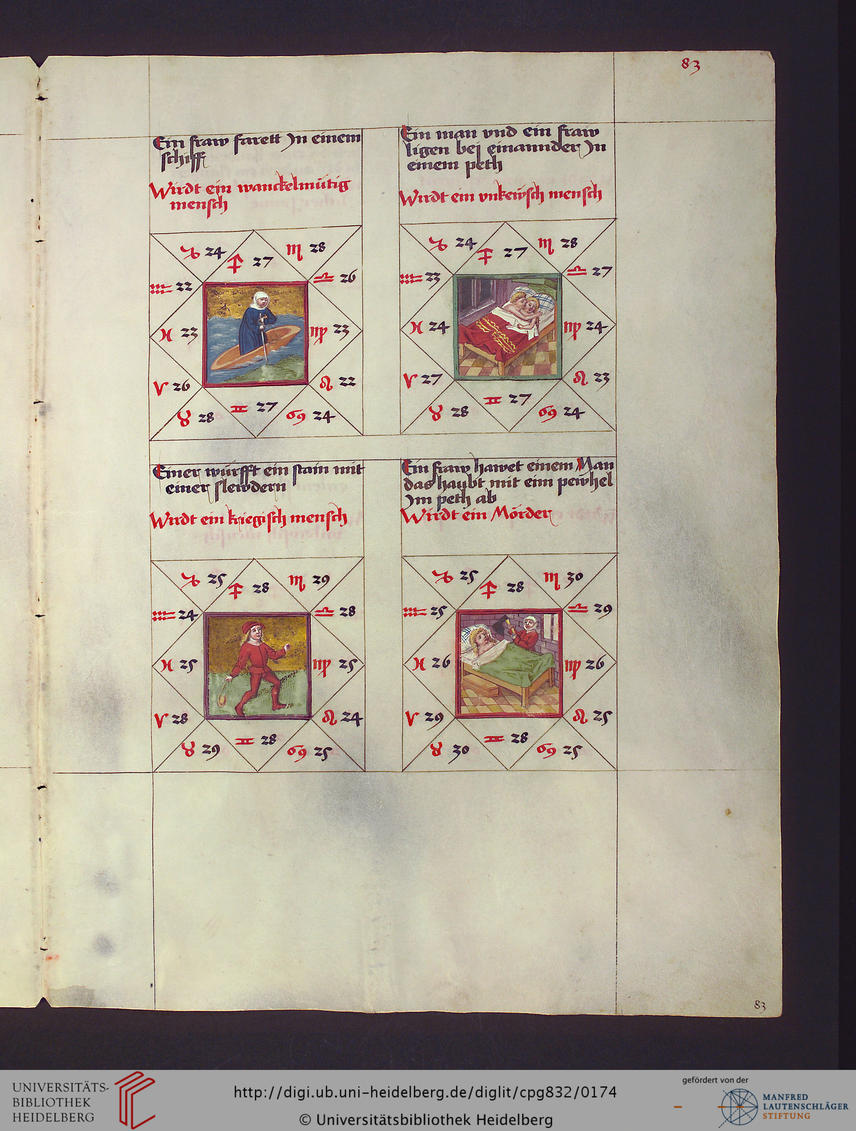 83
Ein fraw farett Jn einem
schiff
Wirdt ein wanckelmütig
mensch
♑ 24 ♐ 27 ♏ 28
♒ 22 ♎ 26
♓ 23 ♍ 23
♈ 26 ♌ 22
♉ 28 ♊ 27 ♋ 24
Ein man vnd ein fraw
ligen bei einannder Jn
einem peth
Wirdt ein vnkewsch mensch
♑ 24 ♐ 27 ♏ 28
♒ 23 ♎ 27
♓ 24 ♍ 24
♈ 27 ♌ 23
♉ 28 ♊ 27 ♋ 24
Einer würfft ein stain mit
einer slewdern
Wirdt ein kriegisch mensch
♑ 25 ♐ 28 ♏ 29
♒ 24 ♎ 28
♓ 25 ♍ 25
♈ 28 ♌ 24
♉ 29 ♊ 28 ♋ 25
Ein fraw hawet einem Man
das haubt mit eim peyhel
Jm peth ab
Wirdt ein Mörder
♑ 25 ♐ 28 ♏ 30
♒ 25 ♎ 29
♓ 26 ♍ 26
♈ 29 ♌ 25
♉ 30 ♊ 28 ♋ 25
83
UNIVERSITÄTS-
BIBLIOTHEK
HEIDELBERG
http://digi.ub.uni-heidelberg.de/diglit/cpg832/0174
© Universitätsbibliothek Heidelberg
gefördert von der
MANFRED
LAUTENSCHLÄGER
STIFTUNG